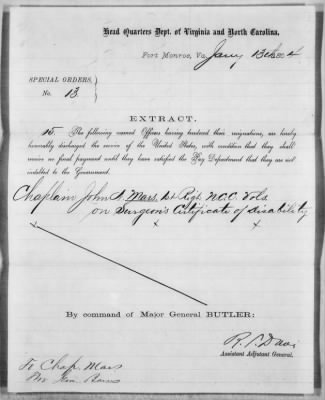 Head Quarters Dept. of Virginia and North Carolina,
Fort Monroe, Va., Jany 13th 1864
SPECIAL ORDERS,
No. 13.
EXTRACT.
15. The following named Officers having tendered their resignations, are hereby
honorably discharged the service of the United States, with condition that they shall
receive no final payment until they have satisfied the Pay Department that they are not
indebted to the Government.
Chaplain John N. Mars, 1st Regt. N.C.C. Vols.
on Surgeon's Certificate of disability
x x x
By command of Major General BUTLER:
R. S. Davis
Assistant Adjutant General.
To Chap. Mars